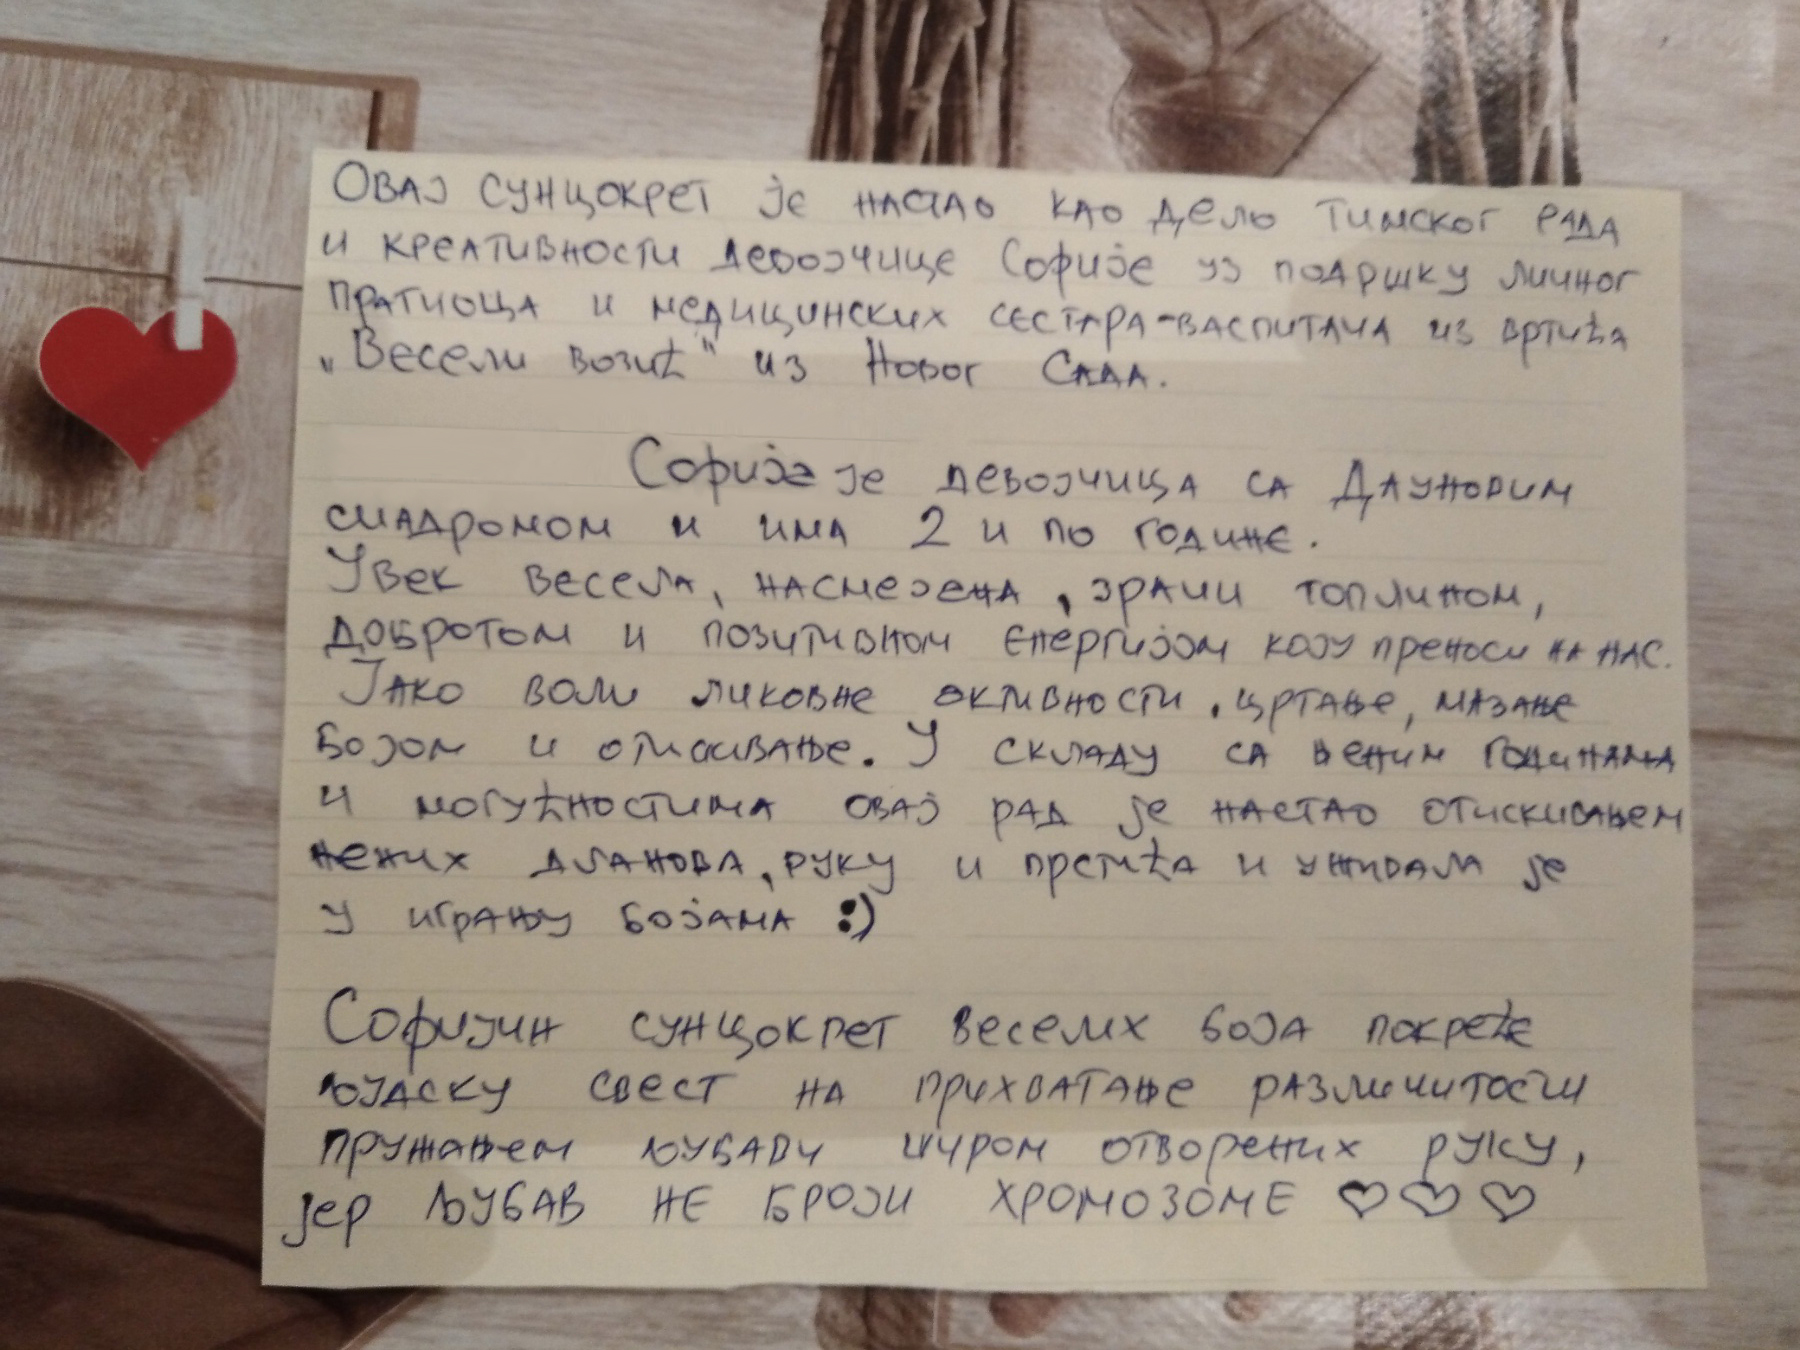 Овај сунцокрет је настао као дело тимског рада
и креативности девојчице Софије уз подршку личног
пратиоца и медицинских сестара-васпитача из вртића
„Весели возић" из Новог Сада.
Софија је девојчица са Дауновим
синдромом и има 2 и по године.
Увек весела, насмејена, зрачи топлином,
добротом и позитивном енергијом коју преноси на нас.
Јако воли ликовне активности, цртање, мазање
бојом и отискивање. У складу са њеним годинама
и могућностима овај рад је настао отискивањем
њених дланова, руку и прстића и уживала је
у игрању бојама :)
Софијин сунцокрет веселих боја покреће
људску свест на прихватање различитости
пружањем љубави широм отворених руку,
јер љубав не броји хромозоме ♡♡♡